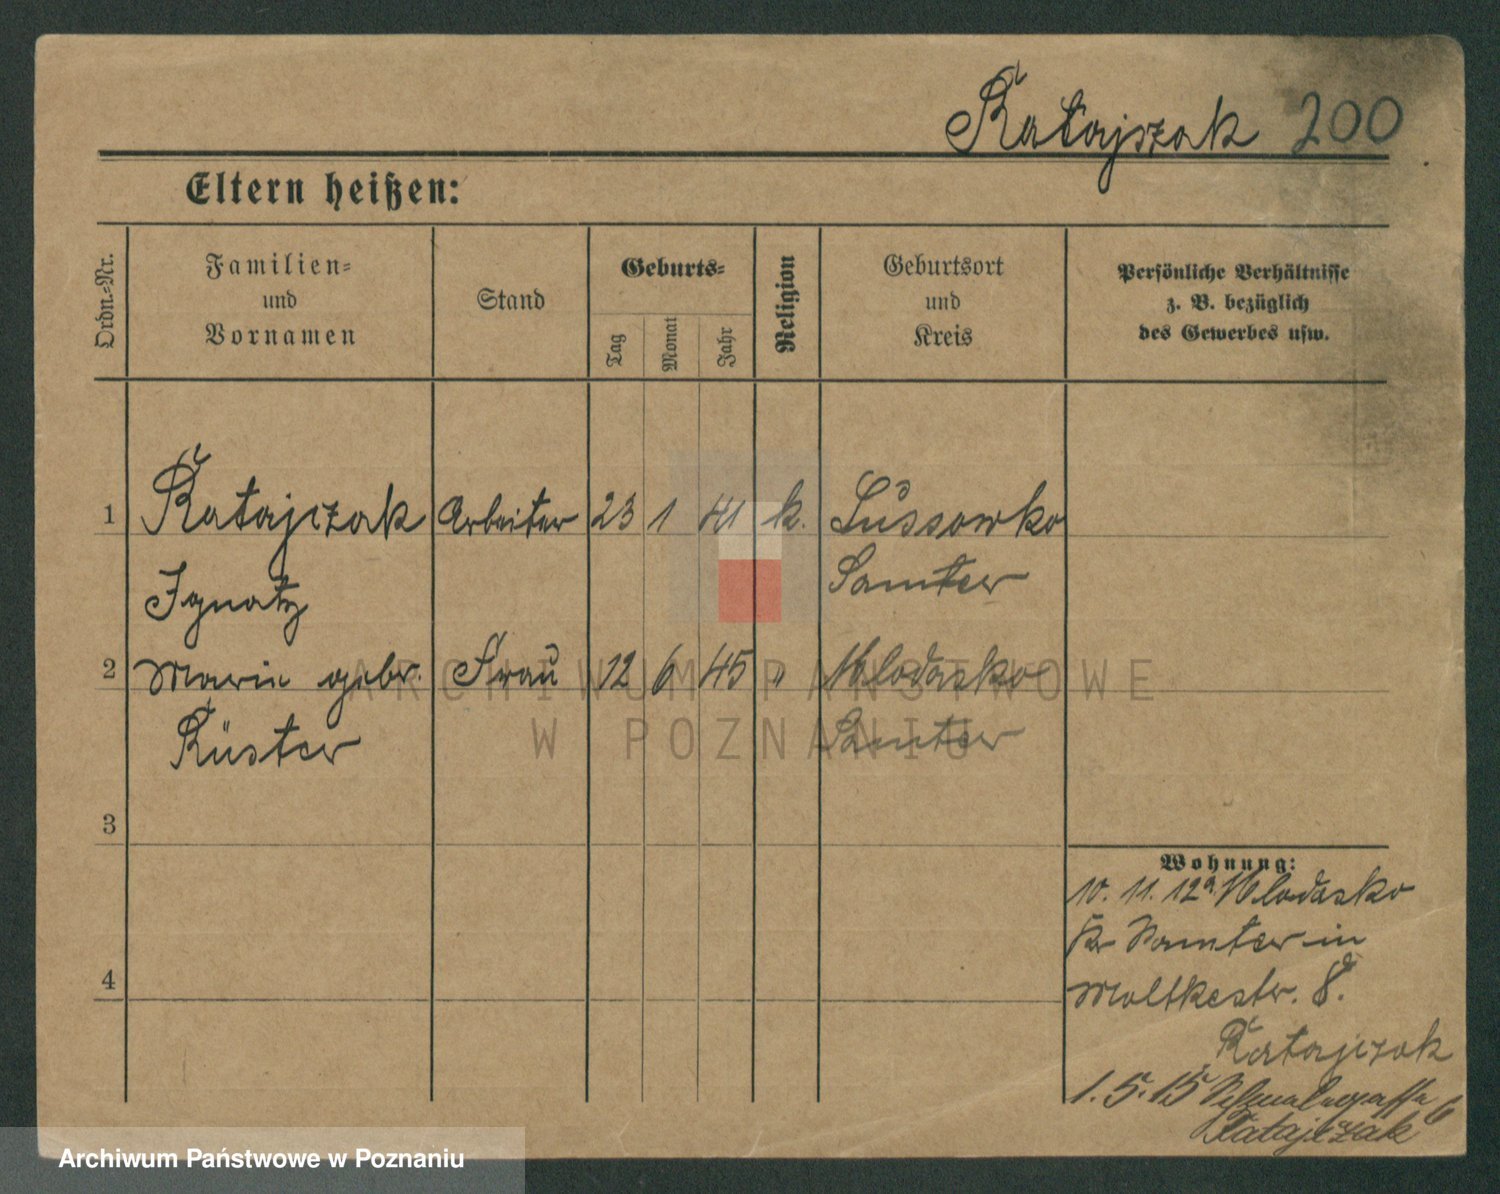 Ratajszak 200
Eltern heißen:
Ordn.-Nr.
Familien-
und
Vornamen
Stand
Geburts-
Tag
Monat
Jahr
Religion
Geburtsort
und
Kreis
Persönliche Verhältnisse
z. B. bezüglich
des Gewerbes usw.
1 Ratajczak Arbeiter 23 1 41 k. Lussowko
Ignatz Samter
2 Marie gebr. Frau 12 6 45 " Mlodasko
Rüster Samter
3
4
Wohnung:
10. 11. 12 Mlodasko
Kr Samter in
Moltkestr. 8.
Ratajczak
1. 5. 15 6
Ratajczak
ARCHIWUM PAŃSTWOWE
W POZNANIU
Archiwum Państwowe w Poznaniu